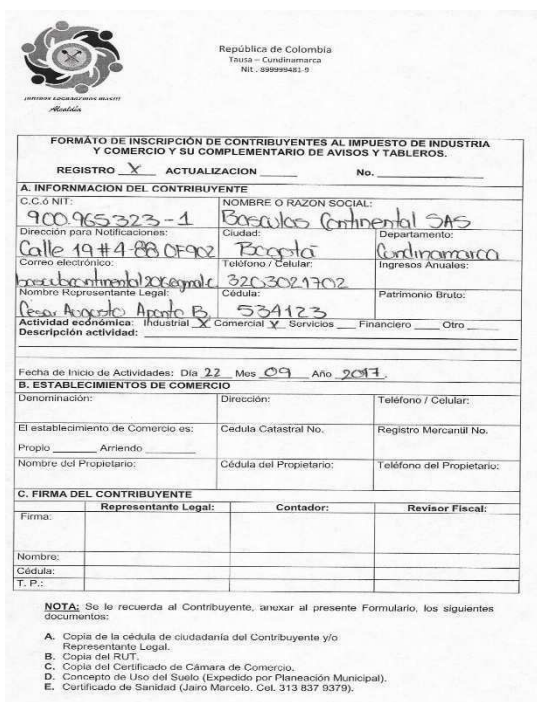 República de Colombia
Tausa – Cundinamarca
Nit . 899999481-9
¡JUNTOS LOGRAREMOS MAS!!!
Alcaldía
FORMATO DE INSCRIPCIÓN DE CONTRIBUYENTES AL IMPUESTO DE INDUSTRIA
Y COMERCIO Y SU COMPLEMENTARIO DE AVISOS Y TABLEROS.
REGISTRO X ACTUALIZACION ______ No. ______
A. INFORNMACION DEL CONTRIBUYENTE
C.C.ó NIT: NOMBRE O RAZON SOCIAL:
900.965323-1 Basculas Continental SAS
Dirección para Notificaciones: Ciudad: Departamento:
Calle 19 #4-88 OF902 Bogotá Cundinamarca
Correo electrónico: Teléfono / Celular: Ingresos Anuales:
3203021702
Nombre Representante Legal: Cédula: Patrimonio Bruto:
Cesar Augusto Aponte B. 534123
Actividad económica: Industrial X Comercial X Servicios ___ Financiero ___ Otro ___
Descripción actividad:
Fecha de Inicio de Actividades: Día 22 Mes 09 Año 2017.
B. ESTABLECIMIENTOS DE COMERCIO
Denominación: Dirección: Teléfono / Celular:
El establecimiento de Comercio es: Cedula Catastral No. Registro Mercantil No.
Propio ______ Arriendo ______
Nombre del Propietario: Cédula del Propietario: Teléfono del Propietario:
C. FIRMA DEL CONTRIBUYENTE
Representante Legal: Contador: Revisor Fiscal:
Firma:
Nombre:
Cédula:
T. P.:
NOTA: Se le recuerda al Contribuyente, anexar al presente Formulario, los siguientes
documentos:
A. Copia de la cédula de ciudadanía del Contribuyente y/o
Representante Legal.
B. Copia del RUT.
C. Copia del Certificado de Cámara de Comercio.
D. Concepto de Uso del Suelo (Expedido por Planeación Municipal).
E. Certificado de Sanidad (Jairo Marcelo. Cel. 313 837 9379).